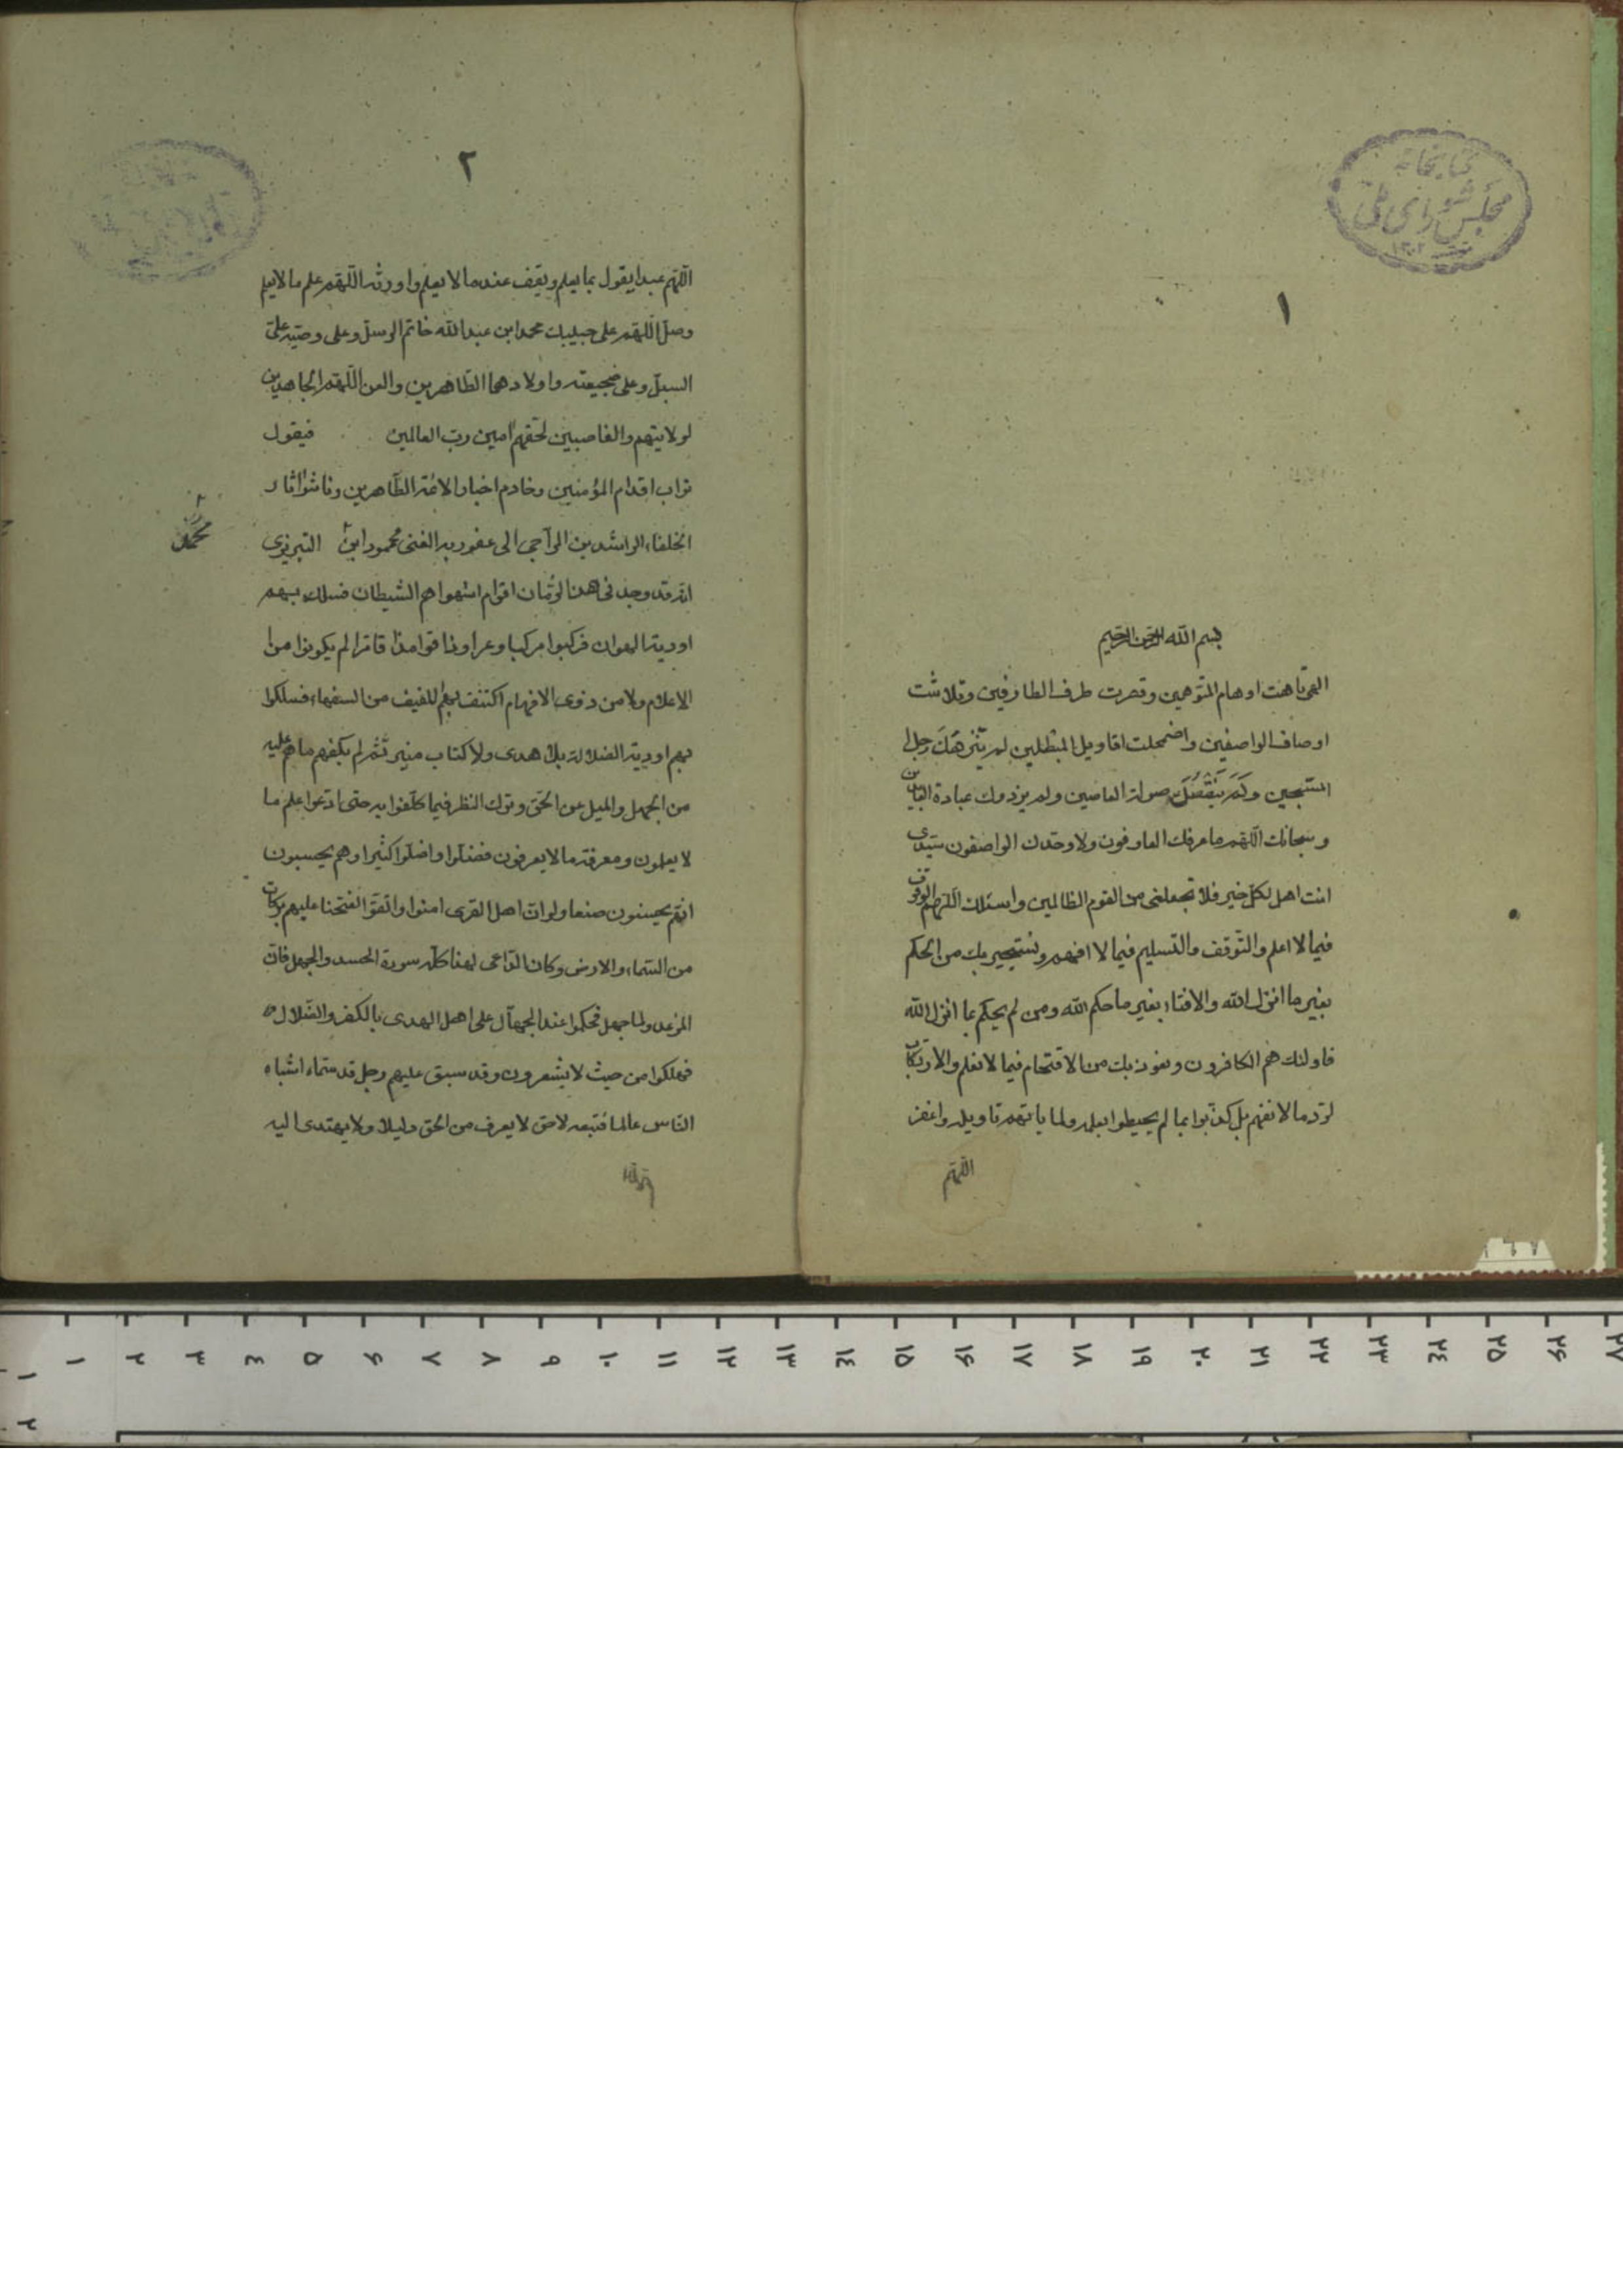 كتابخانه
مجلس شورای ملی
۱
بسم الله الرحمن الرحیم
الهی تاهت اوهام المتوهمین وقصرت طرف الطارفین وتلاشت
اوصاف الواصفین واضمحلت اقاویل المبطلین لم ینزهک وجل
المسبحین ولم تنقصک صولة العاصین ولم یزدوک عبادة
وسبحانک اللهم ما عرفک العارفون ولا وحدک الواصفون سیدی
انت اهل لکل خیر فلا تجعلنی من القوم الظالمین واسئلک اللهم الوقوف
فیما لا اعلم والتوقف والتسلیم فیما لا افهم ونستجیر بک من الحکم
بغیر ما انزل الله والافتاء بغیر ما حکم الله ومن لم یحکم بما انزل الله
فاولئک هم الکافرون ونعوذ بک من الاقتحام فیما لا نعلم والارتکاب
لرد ما لا نفهم بل کذبوا بما لم یحیطوا بعلمه ولما یاتهم تاویله واغفر
اللهم
۲
اللهم عبدا یقول بما یعلم ویقف عند ما لا یعلم واورثه اللهم علم ما لا یعلم
وصل اللهم علی حبیبک محمد ابن عبد الله خاتم الرسل وعلی وصیه علی
السبل وعلی ضجیعته واولادهما الطاهرین والعن اللهم الجاحدین
لولایتهم والغاصبین لحقهم امین رب العالمین فیقول
تراب اقدام المؤمنین وخادم اخبار الائمة الطاهرین وناشر اثار
الخلفاء الراشدین الراجی الی عفو ربه الغنی محمود ابن التبریزی
محمد
انه قد وجد فی هذا الزمان اقوام استهواهم الشیطان فسلک بهم
اودیة الهوان فرکبوا مرکبا وعرا وناقوا مذاقا مرا لم یکونوا من
الاعلام ولا من ذوی الافهام اکتنف بهم للفیف من السفهاء فسلکوا
بهم اودیة الضلالة بلا هدی ولا کتاب منیر ثم لم یکفهم ما هم علیه
من الجهل والمیل عن الحق وترک النظر فیما کلفوا به حتی ادعوا علم ما
لا یعلمون ومعرفة ما لا یعرفون فضلوا واضلوا کثیرا وهم یحسبون
انهم یحسنون صنعا ولو ان اهل القری امنوا واتقوا لفتحنا علیهم برکات
من السماء والارض وکان الداعی لهذا کله سورة الحسد والجهل فان
المرء عدو لما جهل فحکموا عند الجهال علی اهل الهدی بالکفر والضلال
فهلکوا من حیث لا یشعرون وقد سبق علیهم رجل قد سماه اشباه
الناس عالما فتبعه لاحق لا یعرف من الحق دلیلا ولا یهتدی الیه
۱ ۲ ۳ ٤ ۵ ۶ ۷ ۸ ۹ ۱۰ ۱۱ ۱۲ ۱۳ ۱٤ ۱۵ ۱۶ ۱۷ ۱۸ ۱۹ ۲۰ ۲۱ ۲۲ ۲۳ ۲٤ ۲۵ ۲۶ ۲۷
۱
۲